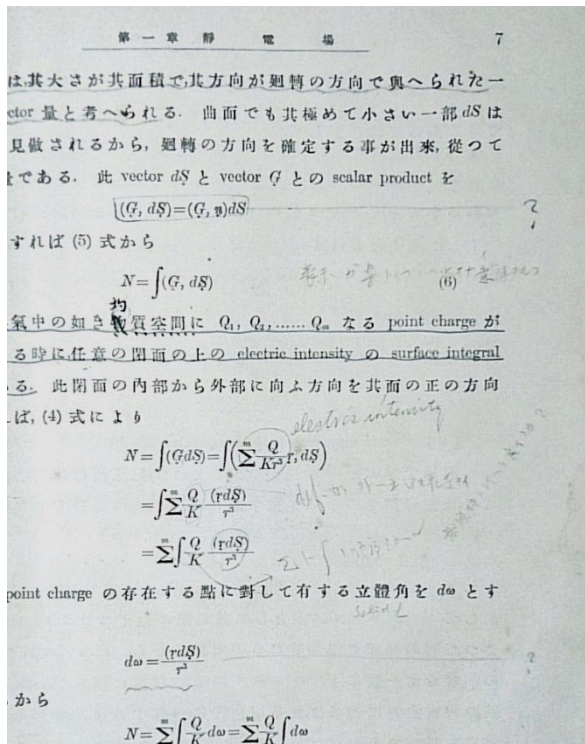 第一章 靜電場 7
は,其大さが其面積で,其方向が廻轉の方向で與へられた一
ctor 量と考へられる. 曲面でも其極めて小さい一部 dS は
見做されるから, 廻轉の方向を確定する事が出來, 從つて
である. 此 vector dS と vector G との scalar product を
(G, dS)=(G, n)dS
?
すれば (5) 式から
N=∫(G, dS) (6)
均
氣中の如き質空間に Q₁, Q₂,...... Qₘ なる point charge が
る時に,任意の閉面の上の electric intensity の surface integral
る. 此閉面の內部から外部に向ふ方向を其面の正の方向
ば, (4) 式により
electric intensity
N=∫(GdS)=∫(Σᵐ Q/Kr³ r, dS)
=∫Σᵐ Q/K (rdS)/r³
=Σᵐ∫ Q/K (rdS)/r³
point charge の存在する點に對して有する立體角を dω とす
dω=(rdS)/r³
?
から
N=Σᵐ∫ Q/K dω=Σᵐ Q/K ∫dω